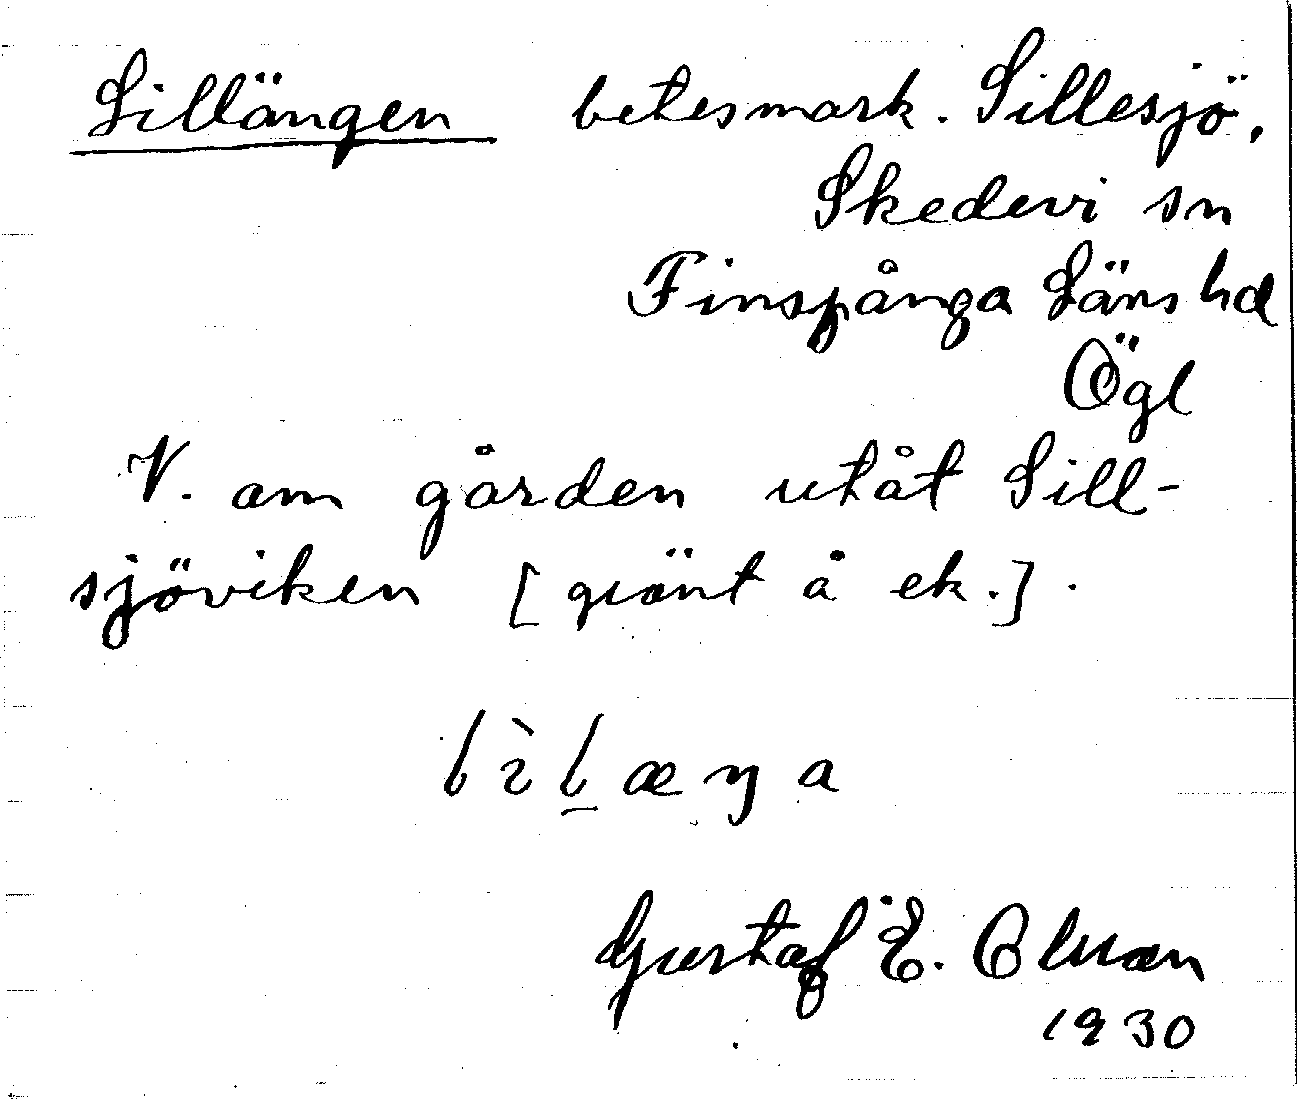 Lillängen betesmark. Sillesjö,
Skedevi sn
Finspånga Läns hd
Ögl
V. om gården utåt Sill-
sjöviken [gränt å ek.].
lìl̠æŋa
Gustaf E. Olsson
1930